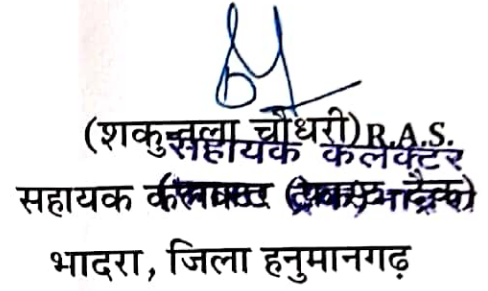 (शकुन्तला चौधरी) R.A.S.
सहायक कलेक्टर
सहायक कलेक्टर (फास्ट ट्रैक)
भादरा, जिला हनुमानगढ़